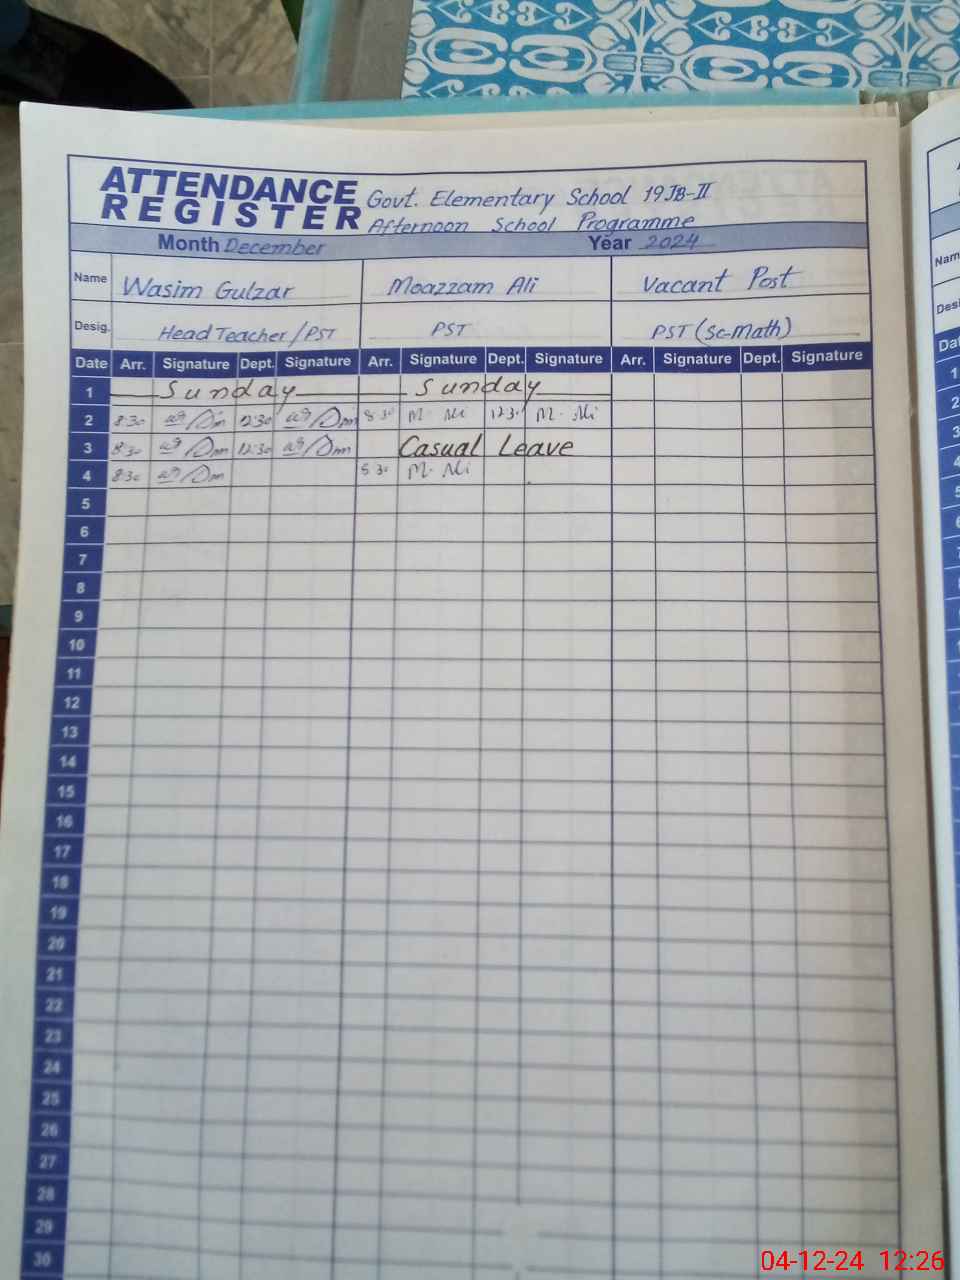 ATTENDANCE
REGISTER
Govt. Elementary School 19JB-II
Afternoon School Programme
Month December Year 2024
Name Wasim Gulzar Moazzam Ali Vacant Post
Desig. Head Teacher/PST PST PST (Sc-Math)
Date Arr. Signature Dept. Signature Arr. Signature Dept. Signature Arr. Signature Dept. Signature
1 Sunday Sunday
2 8:30 12:30 8:30 M. Ali 12:30 M. Ali
3 8:30 12:30 Casual Leave
4 8:30 8:30 M. Ali
5
6
7
8
9
10
11
12
13
14
15
16
17
18
19
20
21
22
23
24
25
26
27
28
29
30
Nam
Desi
Dat
1
2
3
4
5
04-12-24 12:26